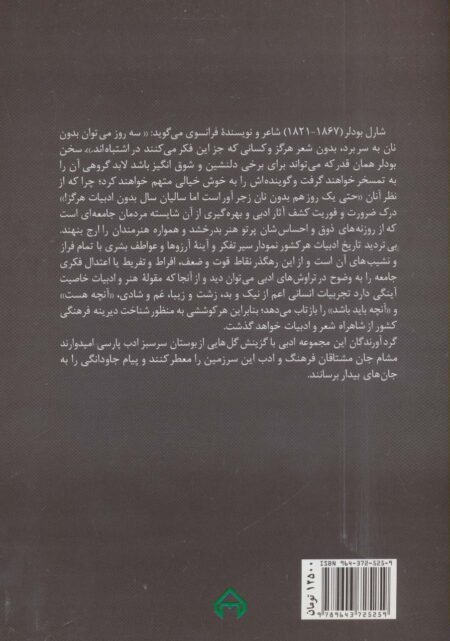 شارل بودلر (۱۸۶۷-۱۸۲۱) شاعر و نویسندهٔ فرانسوی می‌گوید: «سه روز می‌توان بدون
نان به سر برد، بدون شعر هرگز و کسانی که جز این فکر می‌کنند در اشتباه‌اند.» سخن
بودلر همان قدر که می‌تواند برای برخی دلنشین و شوق انگیز باشد لابد گروهی آن را
به تمسخر خواهند گرفت و گوینده‌اش را به خوش خیالی متهم خواهند کرد؛ چرا که از
نظر آنان «حتی یک روز هم بدون نان زجر آور است اما سالیان سال بدون ادبیات هرگز!»
درک ضرورت و فوریت کشف آثار ادبی و بهره‌گیری از آن شایسته مردمان جامعه‌ای است
که از روزنه‌های ذوق و احساس‌شان پرتو هنر بدرخشد و همواره هنرمندان را ارج بنهند.
بی‌تردید تاریخ ادبیات هر کشور نمودار سیر تفکر و آینهٔ آرزوها و عواطف بشری با تمام فراز
و نشیب‌های آن است و از این رهگذر نقاط قوت و ضعف، افراط و تفریط یا اعتدال فکری
جامعه را به وضوح در تراوش‌های ادبی می‌توان دید و از آنجا که مقولهٔ هنر و ادبیات خاصیت
آینگی دارد تجربیات انسانی اعم از نیک و بد، زشت و زیبا، غم و شادی، «آنچه هست»
و «آنچه باید باشد» را بازتاب می‌دهد؛ بنابراین هر کوششی به منظور شناخت دیرینه فرهنگی
کشور از شاهراه شعر و ادبیات خواهد گذشت.
گردآورندگان این مجموعه ادبی با گزینش گل‌هایی از بوستان سرسبز ادب پارسی امیدوارند
مشام جان مشتاقان فرهنگ و ادب این سرزمین را معطر کنند و پیام جاودانگی را به
جان‌های بیدار برسانند.
ISBN 964-372-525-9
9 789643 725259
۱۲۵۰۰ تومان